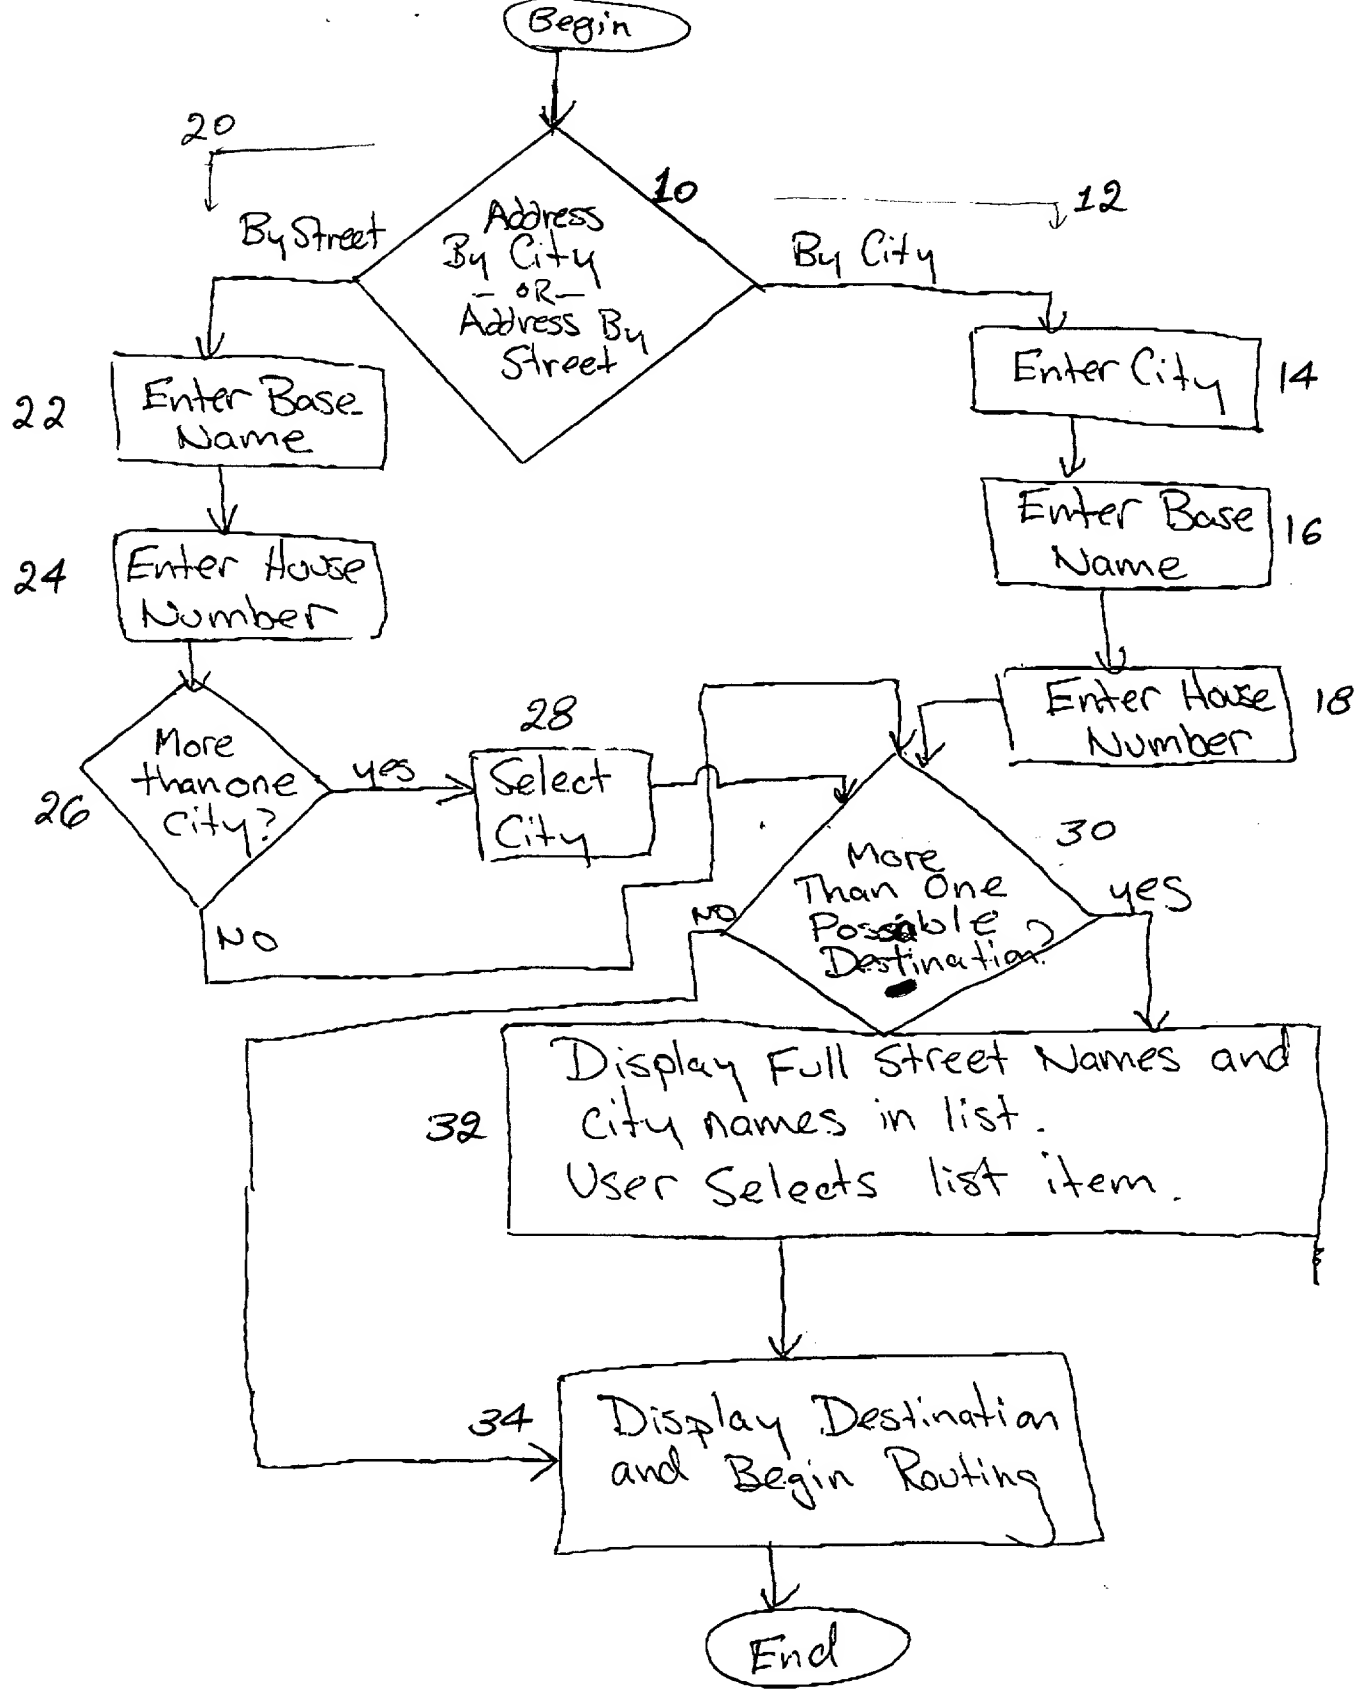 Begin
20
10
12
By Street
Address
By City
- OR -
Address By
Street
By City
Enter City
14
22
Enter Base
Name
Enter Base
Name
16
24
Enter House
Number
Enter House
Number
18
26
More
than one
City?
yes
28
Select
City
NO
30
More
Than One
Possible
Destination?
NO
yes
32
Display Full Street Names and
City names in list.
User Selects list item.
34
Display Destination
and Begin Routing
End